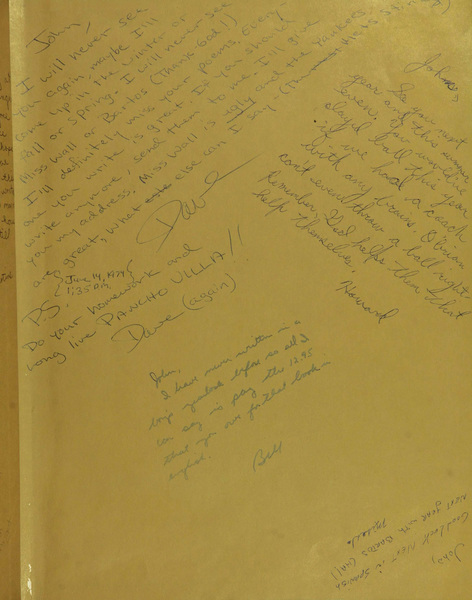 John,
I will never see
you again, maybe I'll
come up in the winter or
fall or spring. I will never see
Miss Wall or Bartos (Thank God!!)
I'll definitely miss your poems. Every-
one you write is great. If you should
write anymore, send them to me. I'll give
you my address. Miss Wall is ugly and the Yankees
are great, what else can I say
Dave
{June 14, 1974
1:35 P.M.}
P.S.
Do your homework and
long live PANCHO VILLIA!!
Dave (again)
John,
So you went
year and this
even, you would've
played ball this year
if we had a coach
with any brains. O'Brian
can't even throw a ball right
Remember, God helps them that
help themselves.
Howard
John,
I have never written in a
boys yearbook before so all I
can say is pay the 12.95
that you owe for that book in
english.
Bill
John,
Good Luck Next in Spanish
Next year with BARDS (HA!)